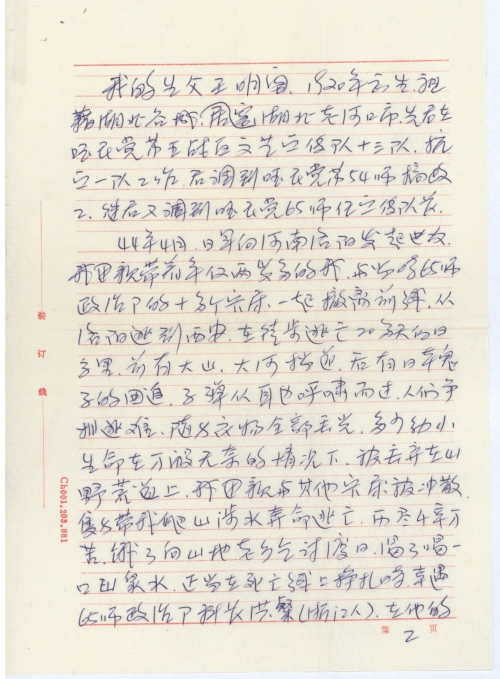 我的生父王明  , 1920年出生祖
籍湖北  ,  湖北老河口市先后在
国民党第五战区文艺宣传队十三队, 抗
宣一队工作, 后调到国民党第54师搞政
工, 继后又调到国民党65师任宣传队长,
44年4月, 日军向河南洛阳发起进攻,
我母亲带着年仅两岁多的我, 与当时65师
政治部的十多个家属, 一起撤离前线, 从
洛阳逃到西安, 在徒步逃亡20多天的日
子里, 前有大山, 大河挡道, 后有日本鬼
子的追, 子弹从耳边呼啸而过, 人们争
抢逃难, 随身衣物全部丢光, 多少幼小
生命在万般无奈的情况下, 被丢弃在山
野荒道上, 我母亲与其他家属被冲散,
身带我爬山涉水弃命逃亡, 历尽千辛万
苦, 饿了向山地老乡乞讨度日, 渴了喝一
口山泉水, 正当在死亡线上挣扎时, 幸遇
65师政治部科长洪  (浙江人), 在他的
装订线
Ch001.203.881
第 2 页